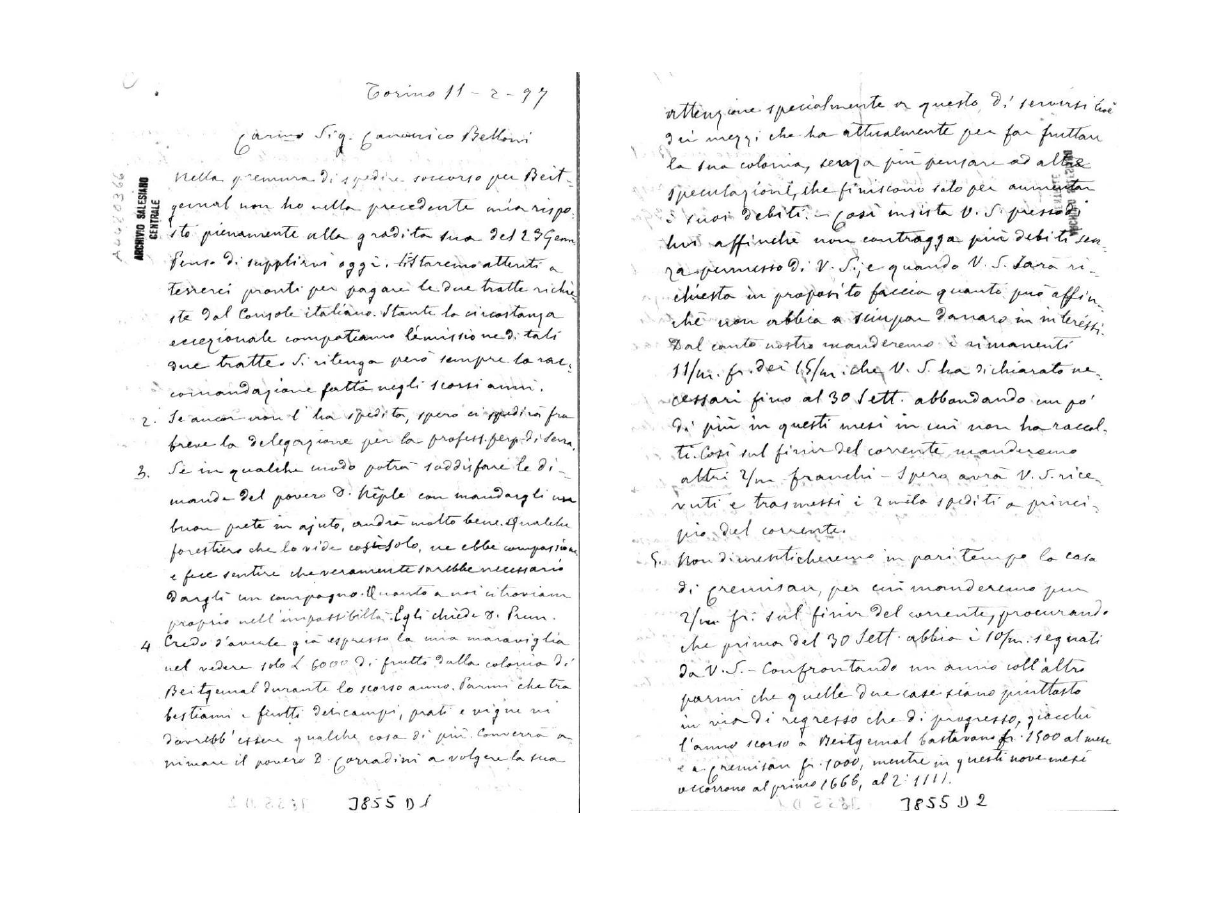 Torino 11-2-97
Car.mo Sig. Canonico Belloni
Nella premura di spedire soccorso per Beit-
gemal non ho nella precedente mia rispo-
sto pienamente alla gradita sua del 23 Genn.
Penso di supplirvi oggi. 1. Staremo attenti a
tenerci pronti per pagare le due tratte richie-
ste dal Console italiano. Stante la circostanza
eccezionale compatiamo l'emissione di tali
due tratte. Si ritenga però sempre la rac-
comandazione fatta negli scorsi anni.
2. Se ancor non l'ha spedita, spero ci spedirà fra
breve la delegazione per la profess. perp. di Senna.
3. Se in qualche modo potrà soddisfare le di-
mande del povero D. Neple con mandargli un
buon prete in ajuto, andrà molto bene. Qualche
forestiero che lo vide così solo, ne ebbe compassione
e fece sentire che veramente sarebbe necessario
dargli un compagno. Quanto a noi ci troviam
proprio nell'impossibiltà. Egli chiede D. Prun.
4 Credo d'averle già espresso la mia maraviglia
nel vedere solo £ 6000 di frutto dalla colonia di
Beitgemal durante lo scorso anno. Parmi che tra
bestiami e frutti dei campi, prati e vigne vi
dovrebb'essere qualche cosa di più. Converrà a-
nimare il povero D. Corradini a volgere la sua
J855 D 1
ARCHIVIO SALESIANO
CENTRALE
attenzione specialmente a questo di servirsi cioè
dei mezzi che ha attualmente per far fruttare
la sua colonia, senza più pensare ad altre
speculazioni, che finiscono solo per aumentar
i suoi debiti. - Così insista V. S. presso di
lui affinchè non contragga più debiti sen-
za permesso di V. S. e quando V. S. sarà ri-
chiesta in proposito faccia quanto può affin-
chè non abbia a sciupar danaro in interessi.
Dal canto nostro manderemo i rimanenti
11/m. fr. dei 15/m. che V. S. ha dichiarato ne-
cessari fino al 30 Sett. abbondando un po'
di più in questi mesi in cui non ha raccol-
ti. Così sul finir del corrente manderemo
altri 2/m franchi - Spero avrà V. S. rice-
vuti e trasmessi i 2 mila spediti a princi-
pio del corrente.
5. Non dimenticheremo in pari tempo la casa
di Cremisan, per cui manderemo pur
2/m fr. sul finir del corrente, procurando
che prima del 30 Sett. abbia i 10/m. segnati
da V. S. - Confrontando un anno coll'altro
parmi che quelle due case siano piuttosto
in via di regresso che di progresso, giacchè
l'anno scorso a Beitgemal bastavano fr. 1500 al mese
e a Cremisan fr. 1000, mentre in questi nove mesi
occorrono al primo 1666, al 2° 1111.
J855 D 2